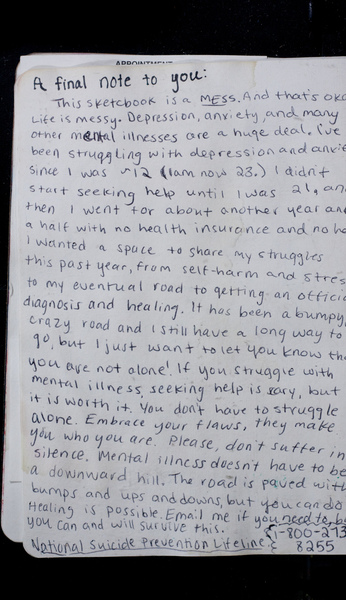 APPOINTMENT
A final note to you:
This sketchbook is a MESS. And that's oka
Life is messy. Depression, anxiety, and many
other mental illnesses are a huge deal. I've
been struggling with depression and anxie
since I was ~12 (I am now 23.) I didn't
start seeking help until I was 21, an
then I went for about another year an
a half with no health insurance and no he
I wanted a space to share my struggles
this past year, from self-harm and stres
to my eventual road to getting an officia
diagnosis and healing. It has been a bumpy,
crazy road and I still have a long way to
go, but I just want to let you know tha
you are not alone! If you struggle with
mental illness, seeking help is scary, but
it is worth it. You don't have to struggle
alone. Embrace your flaws, they make
you who you are. Please, don't suffer in
silence. Mental illness doesn't have to be
a downward hill. The road is paved with
bumps and ups and downs, but you can do
Healing is possible. Email me if you need to, bu
you can and will survive this.
National Suicide Prevention Lifeline: 1-800-273
8255